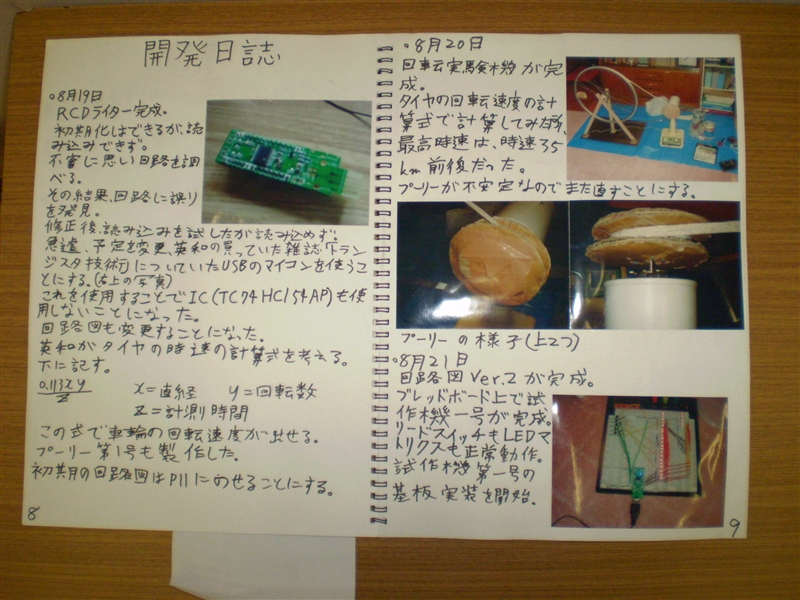 開発日誌
○8月19日
RCDライター完成。
初期化はできるが、読
み込みできず。
不審に思い回路を調
べる。
その結果、回路に誤り
を発見。
修正後、読み込みを試したが読み込めず。
急遽、予定を変更、英和の買っていた雑誌「トラン
ジスタ技術」についていたUSBのマイコンを使うこ
とにする。(右上の写真)
これを使用することでIC(TC74HC154AP)も使
用しないことになった。
回路図も変更することになった。
英和がタイヤの時速の計算式を考える。
下に記す。
0.113xy
z
x=直経 y=回転数
z=計測時間
この式で車輪の回転速度が出せる。
プーリー第1号も製作した。
初期の回路図はP11にのせることにする。
8
○8月20日
回転実験機が完
成。
タイヤの回転速度の計
算式で計算してみた所、
最高時速は、時速35
km前後だった。
プーリーが不安定なのでまた直すことにする。
プーリーの様子(上2つ)
○8月21日
回路図Ver.2が完成。
ブレッドボード上で試
作機一号が完成。
リードスイッチもLEDマ
トリクスも正常動作。
試作機第一号の
基板実装を開始。
9